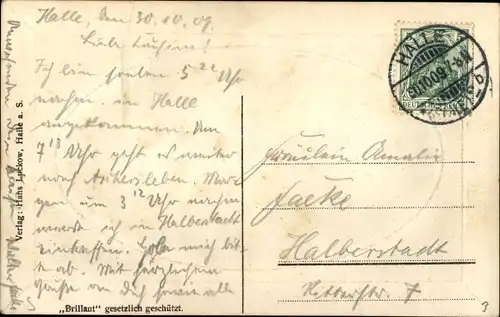 Halle, den 30.10.09.
Liebe Cousine!
Ich bin soeben 5 22 Uhr
nachm. in Halle
angekommen. Um
7 18 Uhr geht es weiter
nach Aschersleben. Mor
gen um 3 12 Uhr nachm
werde ich in Halberstadt
eintreffen. Hole mich bit
te ab. Mit herzlichen
Grüßen an Dich sowie alle
Verlag: Hans Luckow, Halle a. S.
„Brillant“ gesetzlich geschützt.
HALLE
30.10.09.7-8N.
Fräulein Amalie
Halberstadt
Ritterstr. 7
3